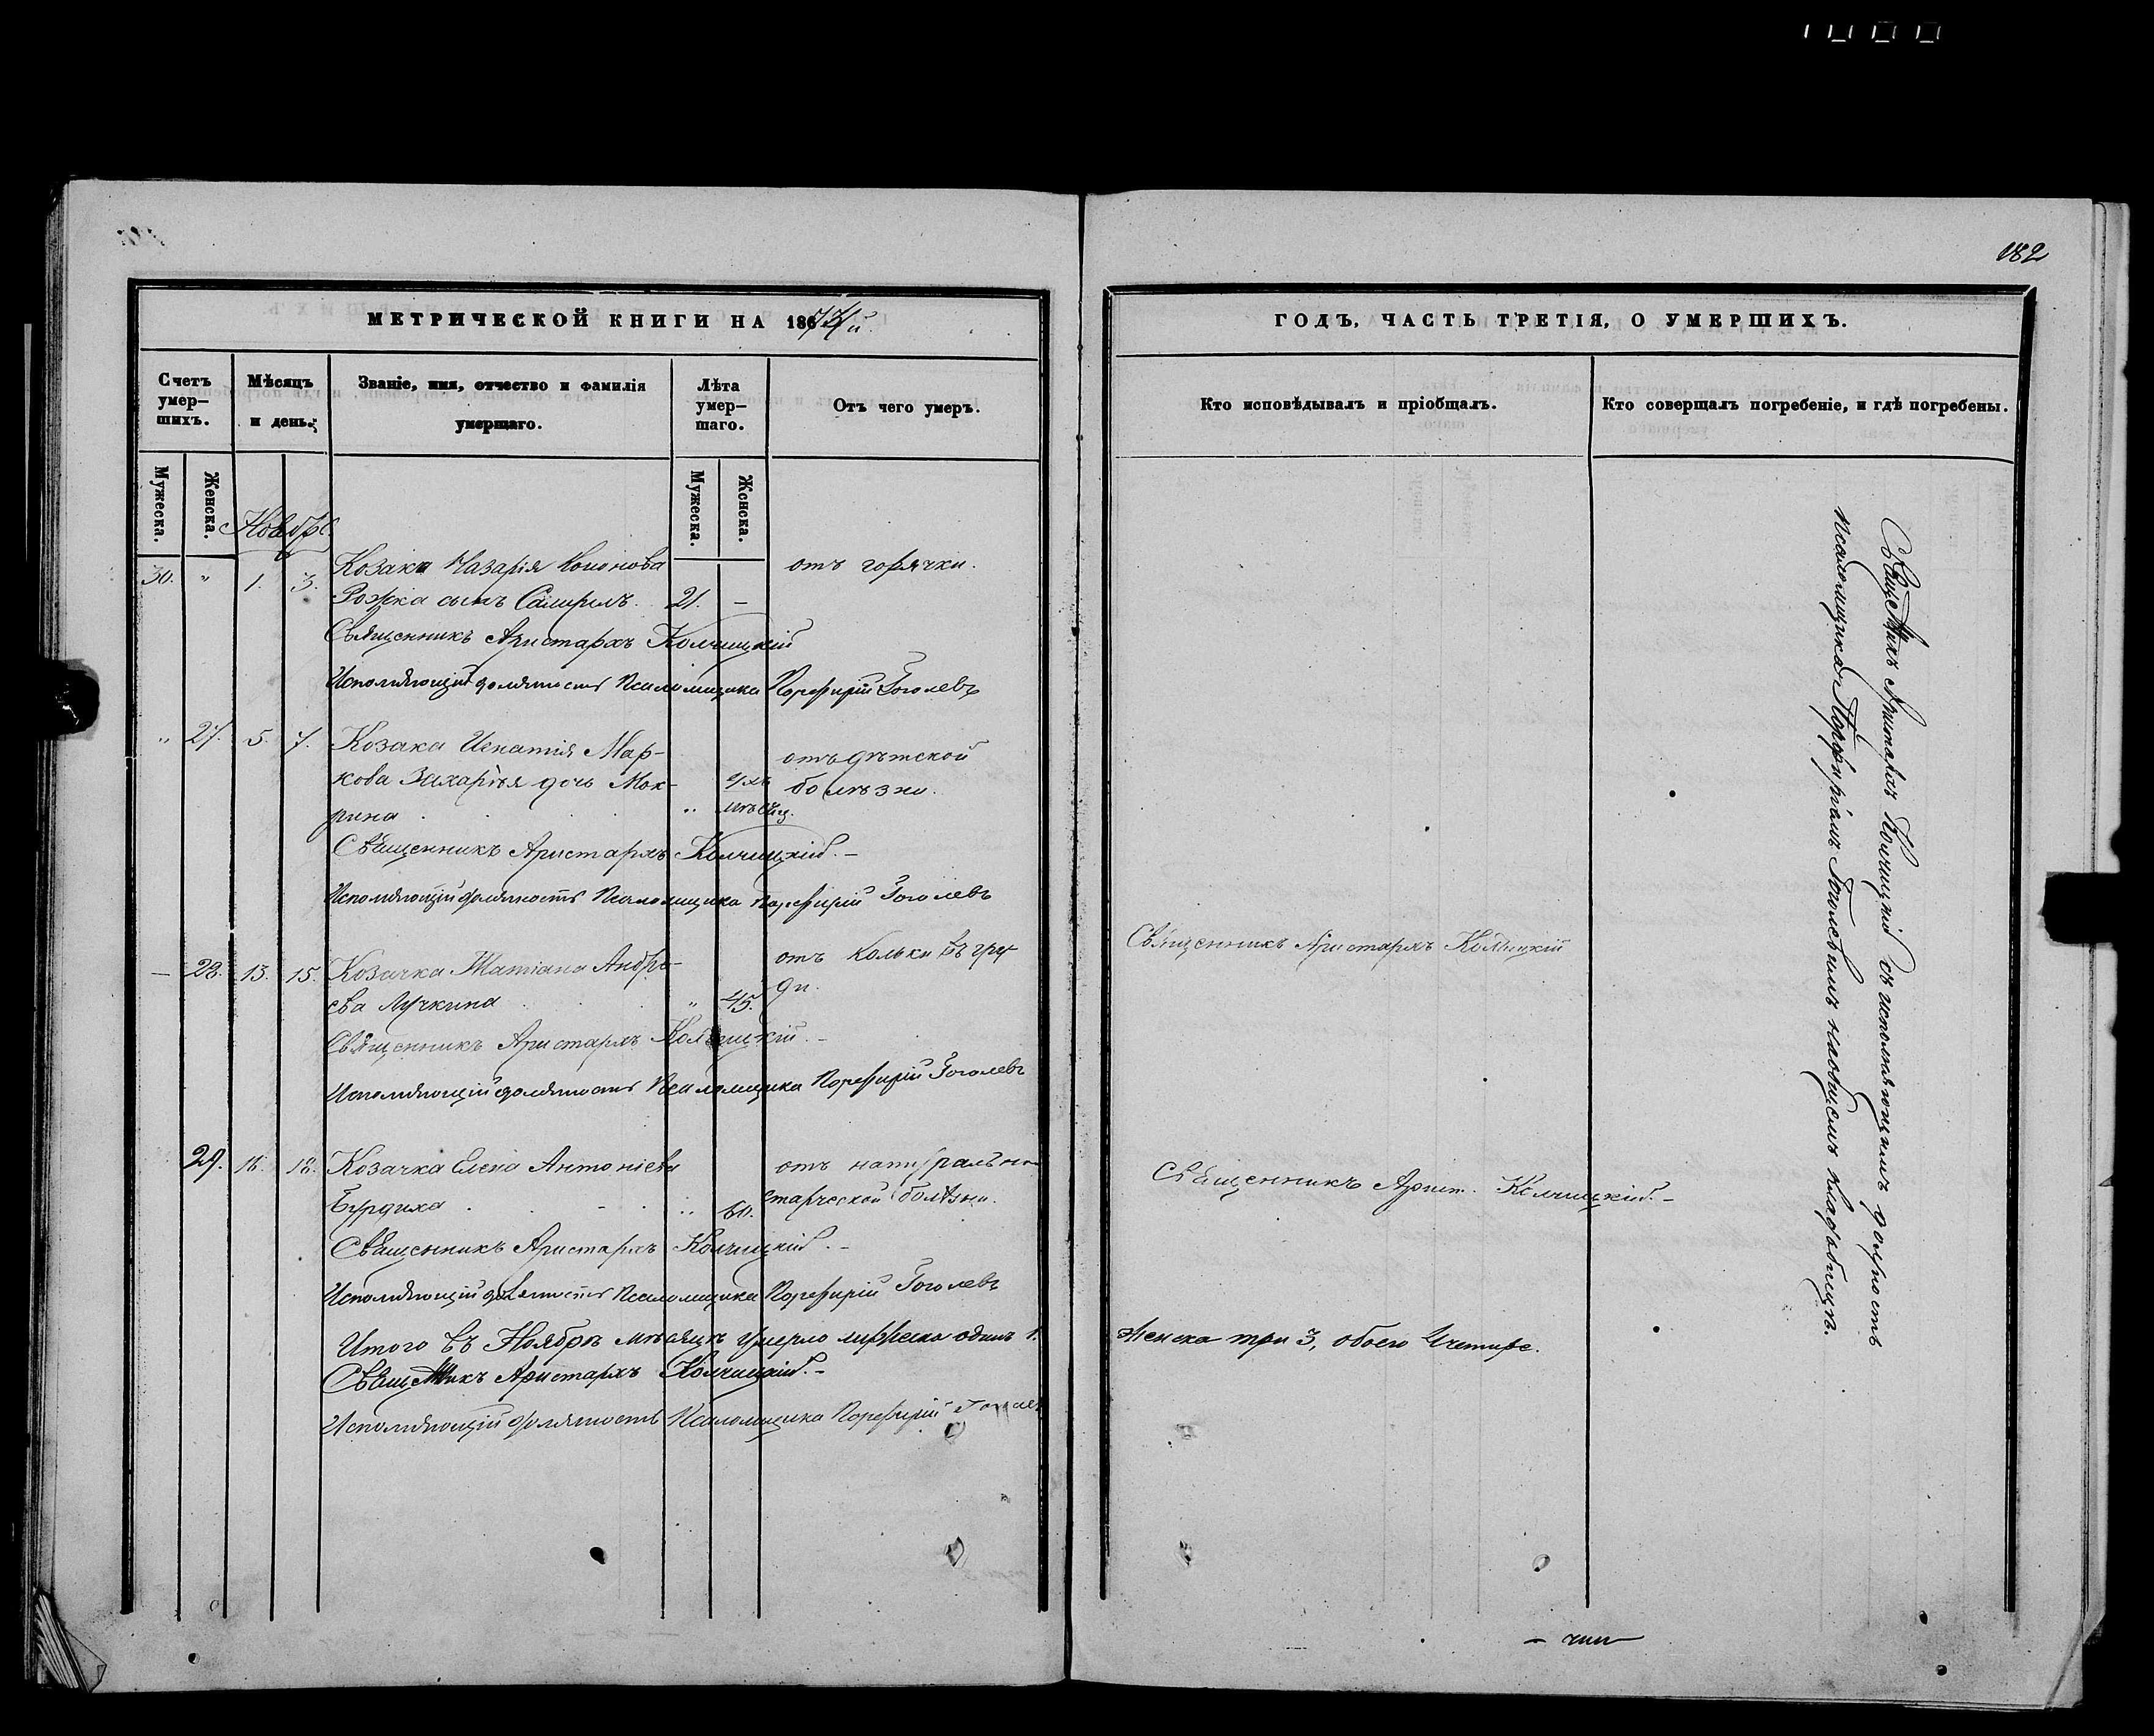 182
МЕТРИЧЕСКОЙ КНИГИ НА 186
Счетъ умер–шихъ.
Мѣсяцъ и день.
Званіе, имя, отчество и фамилія умершаго.
Лѣта умер–шаго.
Отъ чего умеръ.
Мужеска.
Женска.
Мужеска.
Женска.
30. " 1. 3. Козака Назарія Кононова отъ горячки.
Рожка сынъ 21. –
Священникъ Аристархъ Колчицкій
Исполняющій должность Псаломщика Порфирій Гоголевъ
" 27. 5. 7. Козака Игнатія Мар- отъ дѣтской
кова Захарія дочь Мок- болѣзни.
рина " мѣсяц.
Священникъ Аристархъ Колчицкій. –
Исполняющій должность Псаломщика Порфирій Гоголевъ
– 28. 13. 15. Козачка Татіана Андре- отъ кольки въ гру-
ева Лучкина " 45. ди.
Священникъ Аристархъ Колчицкій. –
Исполняющій должность Псаломщика Порфирій Гоголевъ
29. 16. 18. Козачка Елена Антоніева отъ натурально
Бурдиха " 60. старческой болѣзни.
Священникъ Аристархъ Колчицкій. –
Исполняющій должность Псаломщика Порфирій Гоголевъ
Итого въ Ноябрѣ мѣсяцѣ умерло мужеска одинъ 1.
Священникъ Аристархъ Колчицкій. –
Исполняющій должность Псаломщика Порфирій Гоголевъ
ГОДЪ, ЧАСТЬ ТРЕТІЯ, О УМЕРШИХЪ.
Кто исповѣдывалъ и пріобщалъ.
Кто совершалъ погребеніе, и гдѣ погребены.
Священникъ Аристархъ Колчицкій
Священникъ Арист. Колчицкій. –
женска три 3, обоего четыре.
Священникъ Аристархъ Колчицкій съ исполняющимъ должность
псаломщика Порфиріемъ Гоголевымъ на общемъ кладбищѣ.